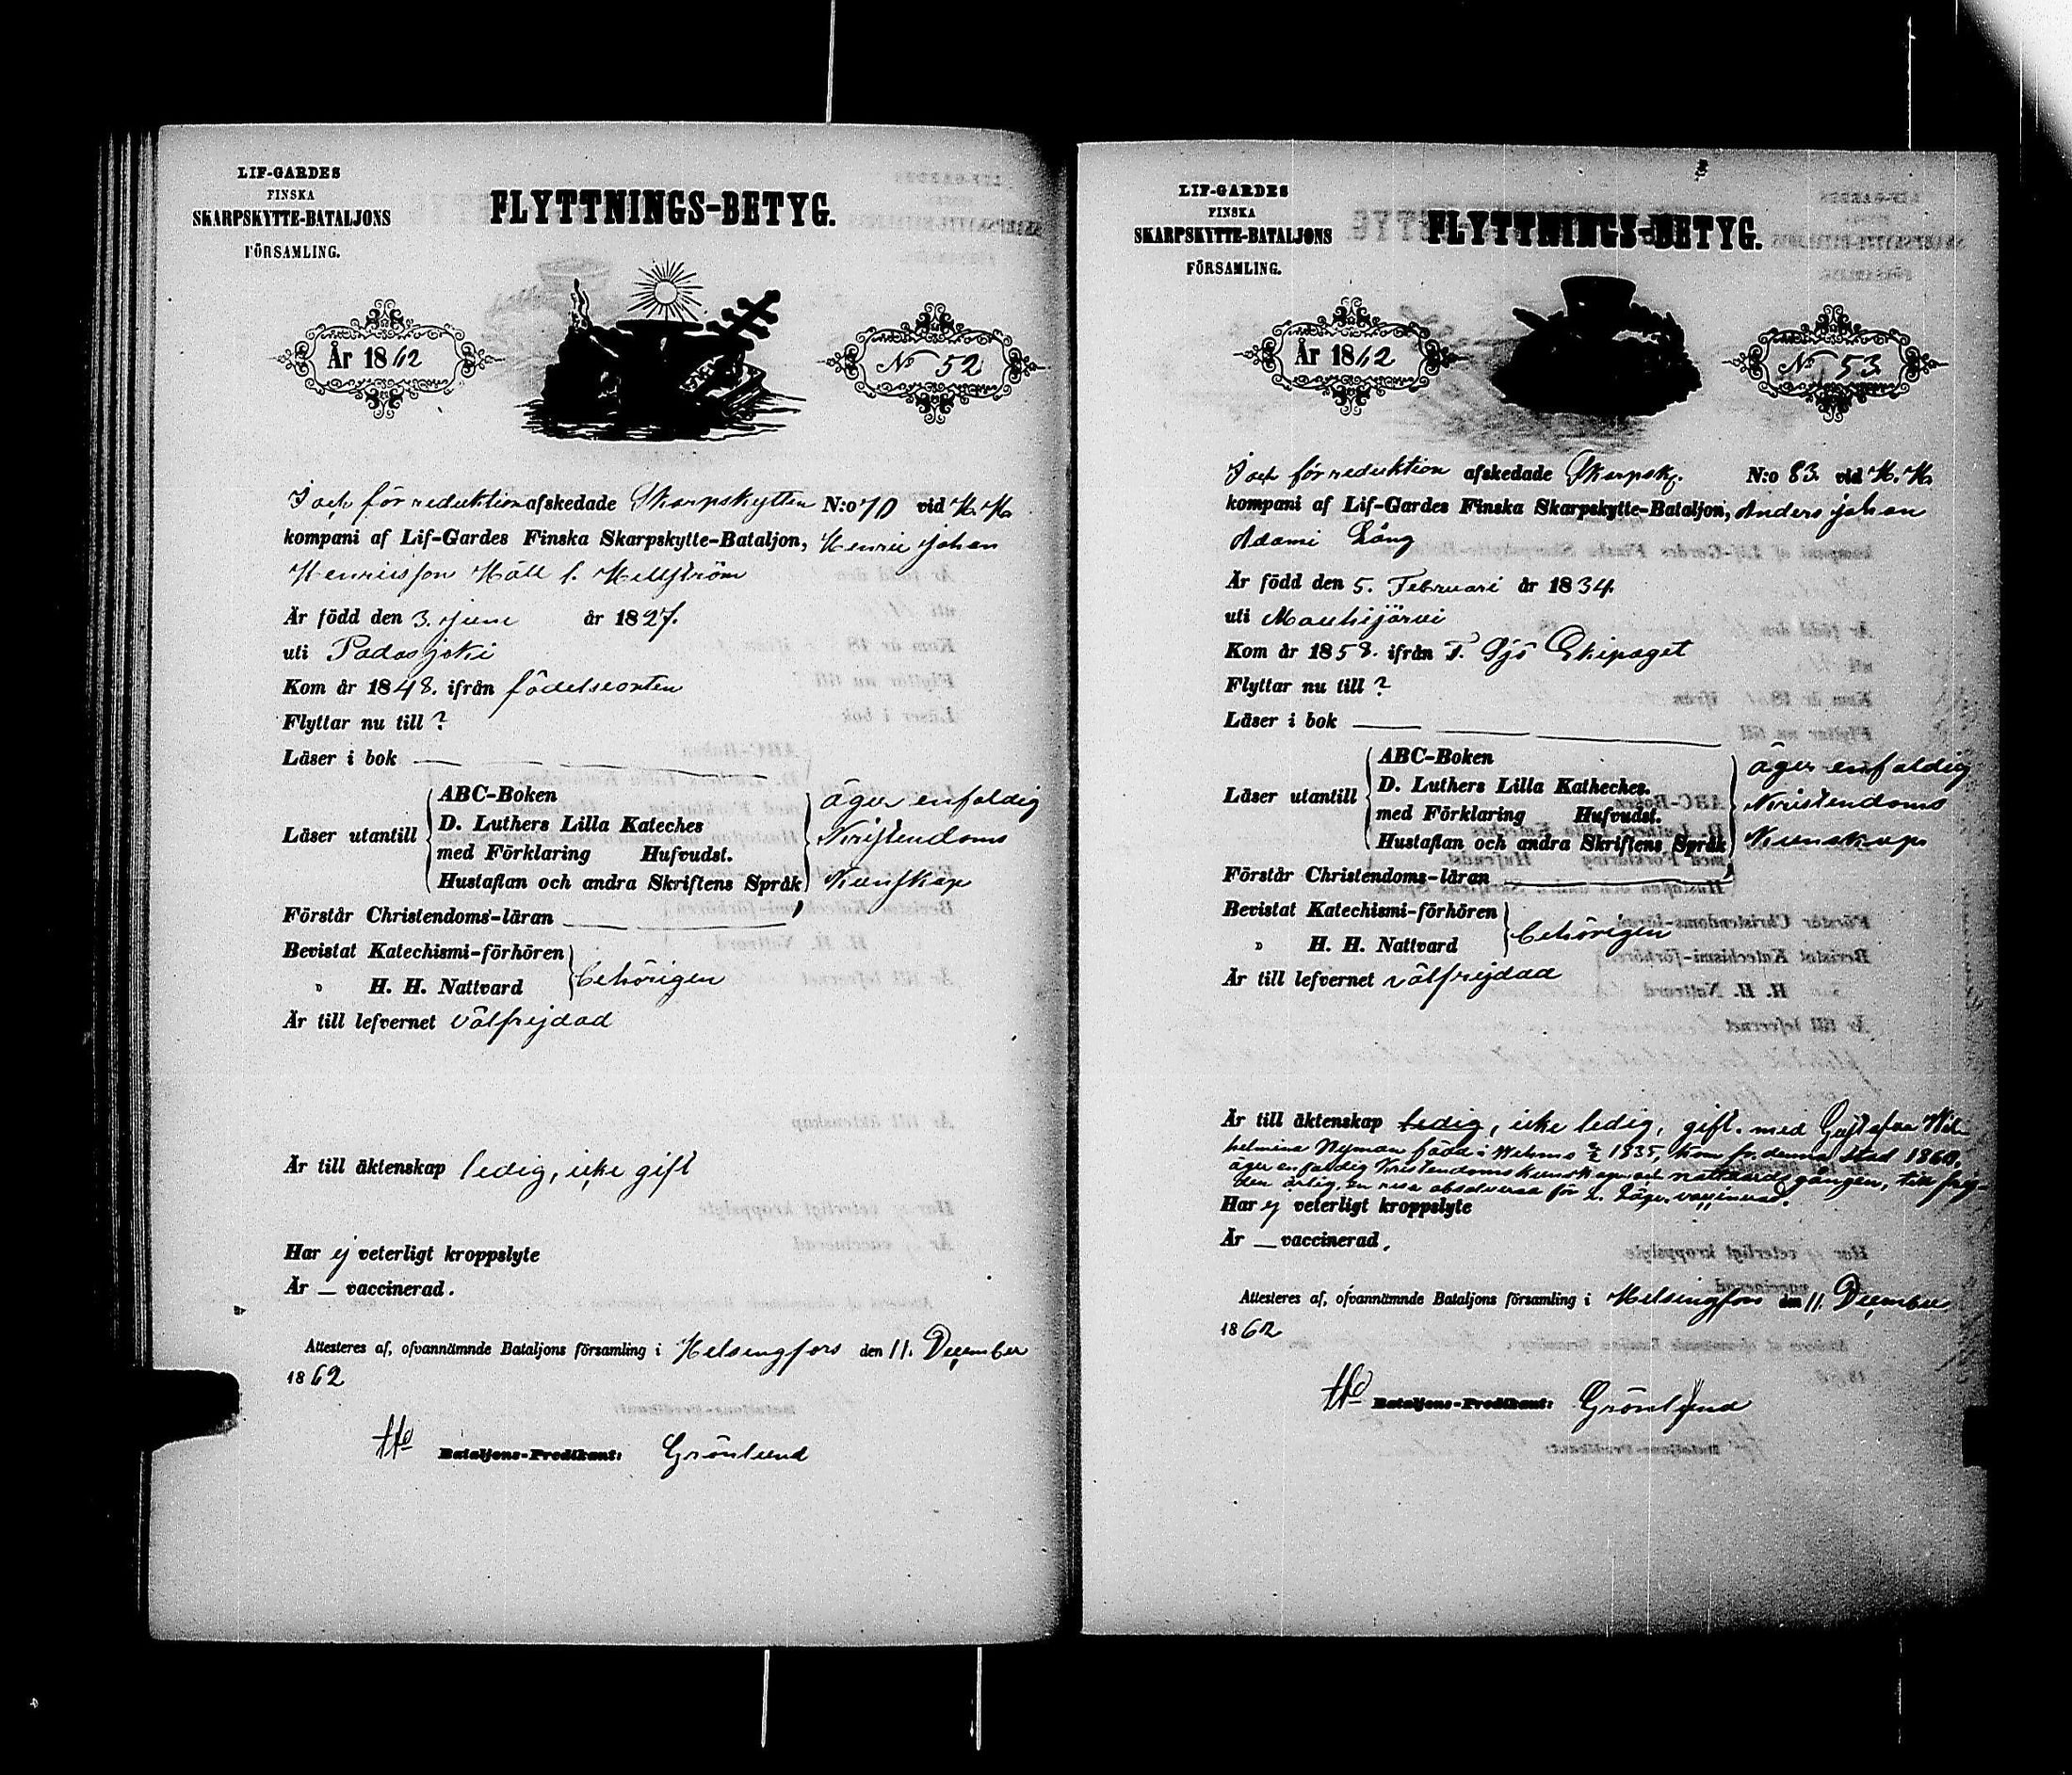 LIF-GARDES
FINSKA
SKARPSKYTTE-BATALJONS
FÖRSAMLING.
FLYTTNINGS-BETYG.
År 1862
No 52
I och för reduktion afskedade Skarpskytten N:o 70 vid K. K.
kompani af Lif-Gardes Finska Skarpskytte-Bataljon, Henric Johan
Henricsson Häll l. Hellström
Är född den 3. Juni år 1827.
uti Padasjoki
Kom år 1848. ifrån födelseorten
Flyttar nu till ?
Läser i bok
Läser utantill
ABC-Boken
D. Luthers Lilla Kateches
med Förklaring Hufvudst.
Hustaflan och andra Skriftens Språk
äger enfaldig
Kristendoms
Kunskap
Förstår Christendoms-läran
Bevistat Katechismi-förhören
" H. H. Nattvard
behörigen
Är till lefvernet välfrejdad
Är till äktenskap ledig, icke gift
Har ej veterligt kroppslyte
Är — vaccinerad.
Attesteres af, ofvannämnde Bataljons församling i Helsingfors den 11. December
1862
Bataljons-Predikant: Grönlund
LIF-GARDES
FINSKA
SKARPSKYTTE-BATALJONS
FÖRSAMLING.
FLYTTNINGS-BETYG.
År 1862
No 53
I och för reduktion afskedade Skarpsk. N:o 83. vid K. K.
kompani af Lif-Gardes Finska Skarpskytte-Bataljon, Anders Johan
Adami Lång
Är född den 5. Februari år 1834.
uti Mouhijärvi
Kom år 1858. ifrån F. Sjö Ekipaget
Flyttar nu till ?
Läser i bok
Läser utantill
ABC-Boken
D. Luthers Lilla Katheches.
med Förklaring Hufvudst.
Hustaflan och andra Skriftens Språk
äger enfaldig
Kristendoms
Kunskap
Förstår Christendoms-läran
Bevistat Katechismi-förhören
" H. H. Nattvard
behörigen
Är till lefvernet välfrejdad
Är till äktenskap ledig, icke ledig, gift. med Gustafva Wil-
helmina Nyman född i Wehmo 1835, kom fr. denna stad 1860,
äger enfaldig Kristendomskunskap och nattvardsgången, till frej-
den ärlig, en resa absolverad för l. läger, vaccinerad.
Har ej veterligt kroppslyte
Är — vaccinerad.
Attesteres af, ofvannämnde Bataljons församling i Helsingfors den 11. December
1862
Bataljons-Predikant: Grönlund